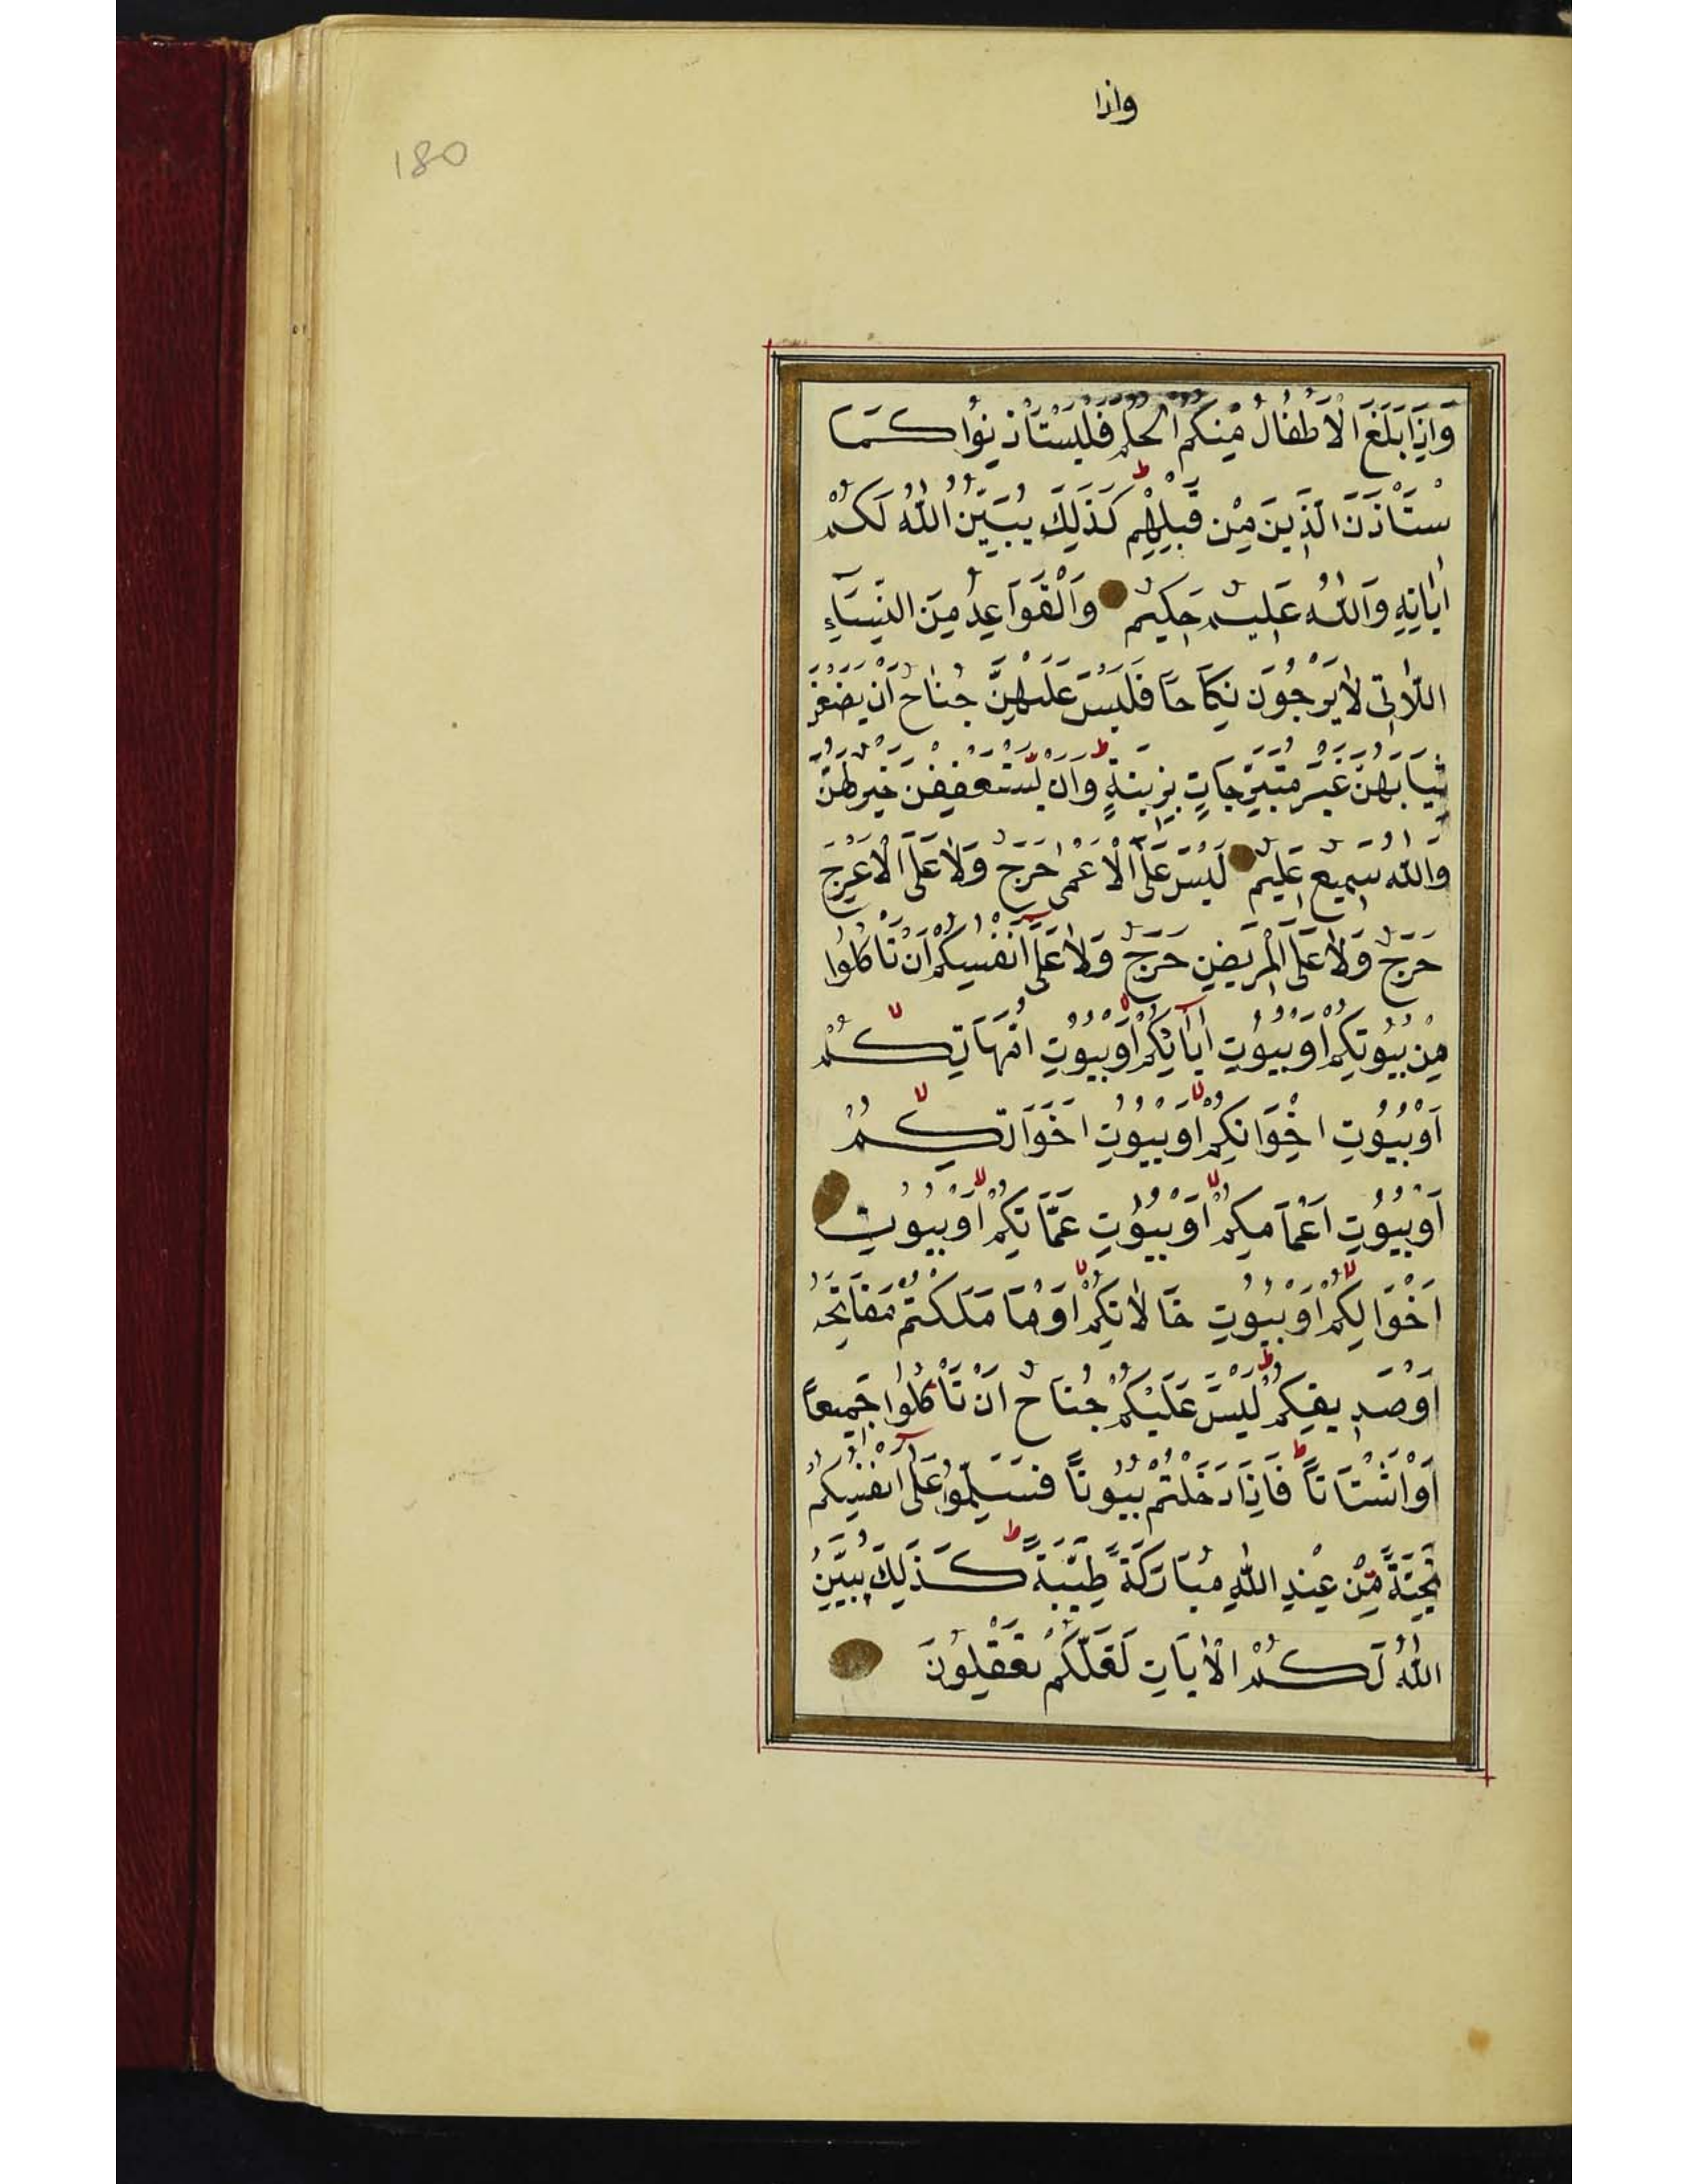 واذا
180
وَاِذَا بَلَغَ الْاَطْفَالُ مِنْكُمُ الْحُلُمَ فَلْيَسْتَأْذِنُوا كَمَا
سْتَأْذَنَ الَّذِينَ مِنْ قَبْلِهِمْ ط كَذَلِكَ يُبَيِّنُ اللّٰهُ لَكُمْ
اٰيَاتِهِ وَاللّٰهُ عَلِيمٌ حَكِيمٌ وَالْقَوَاعِدُ مِنَ النِّسَآءِ
اللَّاتِى لَا يَرْجُونَ نِكَاحًا فَلَيْسَ عَلَيْهِنَّ جُنَاحٌ اَنْ يَضَعْنَ
ثِيَابَهُنَّ غَيْرَ مُتَبَرِّجَاتٍ بِزِينَةٍ ط وَاَنْ يَسْتَعْفِفْنَ خَيْرٌ لَهُنَّ
وَاللّٰهُ سَمِيعٌ عَلِيمٌ لَيْسَ عَلَى الْاَعْمٰى حَرَجٌ وَلَا عَلَى الْاَعْرَجِ
حَرَجٌ وَلَا عَلَى الْمَرِيضِ حَرَجٌ وَلَا عَلٰٓى اَنْفُسِكُمْ اَنْ تَأْكُلُوا
مِنْ بُيُوتِكُمْ اَوْ بُيُوتِ اٰبَآئِكُمْ اَوْ بُيُوتِ اُمَّهَاتِكُمْ لا
اَوْ بُيُوتِ اِخْوَانِكُمْ لا اَوْ بُيُوتِ اَخَوَاتِكُمْ لا
اَوْ بُيُوتِ اَعْمَامِكُمْ لا اَوْ بُيُوتِ عَمَّاتِكُمْ لا اَوْ بُيُوتِ
اَخْوَالِكُمْ لا اَوْ بُيُوتِ خَالَاتِكُمْ لا اَوْ مَا مَلَكْتُمْ مَفَاتِحَهُ
اَوْ صَدِيقِكُمْ ط لَيْسَ عَلَيْكُمْ جُنَاحٌ اَنْ تَأْكُلُوا جَمِيعًا
اَوْ اَشْتَاتًا ط فَاِذَا دَخَلْتُمْ بُيُوتًا فَسَلِّمُوا عَلٰٓى اَنْفُسِكُمْ
تَحِيَّةً مِنْ عِنْدِ اللّٰهِ مُبَارَكَةً طَيِّبَةً ط كَذَلِكَ يُبَيِّنُ
اللّٰهُ لَكُمُ الْاٰيَاتِ لَعَلَّكُمْ تَعْقِلُونَ